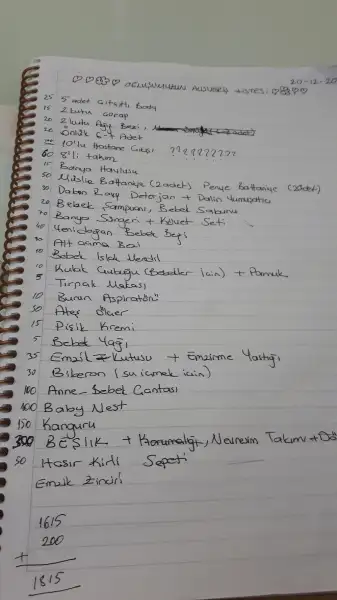 20-12-20
OĞLUMUZUN ALIŞVERİŞ LİSTESİ
25 5 adet Çıtçıtlı Body
15 2 kutu Çorap
20 2 kutu Ağız Bezi,
20 6-7 Adet
10'lu Hastane Çıkışı ?????????
60 8'li takım
15 Banyo Havlusu
50 Müslin Battaniye (2 adet) Penye Battaniye (2 adet)
30 Dalan Roxy Deterjan + Dalin Yumuşatıcı
20 Bebek Şampuanı, Bebek Sabunu
70 Banyo Süngeri + Küvet Seti
40 Yenidoğan Bebek Bezi
30 Alt Açma Bezi
10 Bebek Islak Mendil
10 Kulak Çubuğu (Bebekler İçin) + Pamuk
5 Tırnak Makası
10 Burun Aspiratörü
50 Ateş Ölçer
15 Pişik Kremi
5 Bebek Yağı
35 Emzik Kutusu + Emzirme Yastığı
30 Biberon (su içmek için)
100 Anne-Bebek Çantası
100 Baby Nest
150 Kanguru
300 BEŞİK + Korumalığı, Nevresim Takımı +
50 Hasır Kirli Sepeti
Emzik Zinciri
1615
200
+
1815